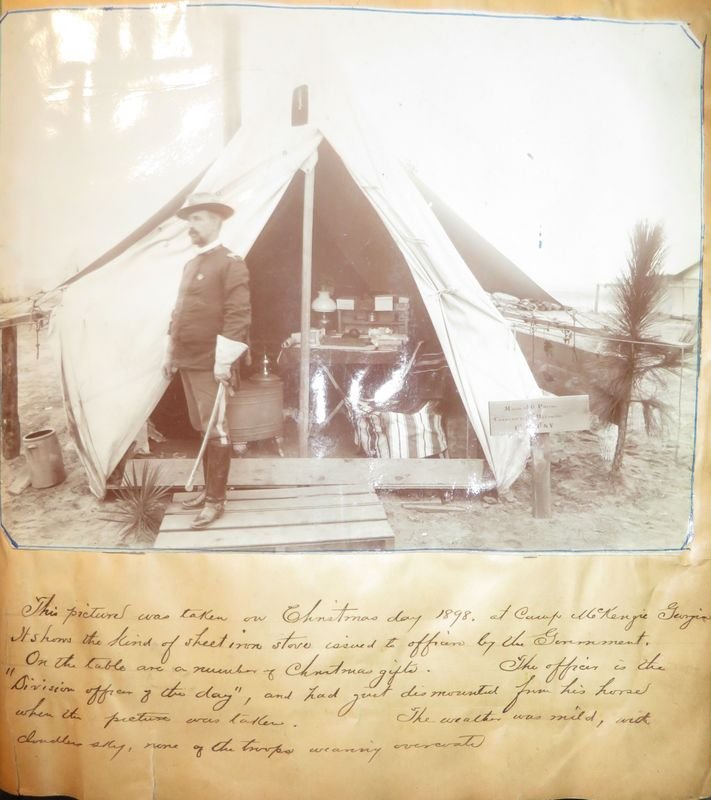 This picture was taken on Christmas day 1898. at Camp McKenzie Georgia
It shows the kind of sheet iron stove issued to officers by the Government.
On the table are a number of Christmas gifts. The officer is the
"Division officer of the day", and had just dismounted from his horse
when the picture was taken. The weather was mild, with
cloudless sky, none of the troops wearing overcoats